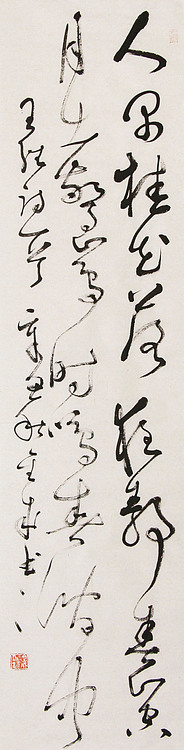 人闲桂花落夜静春山空
月出惊山鸟时鸣春涧中
王维诗一首辛丑秋